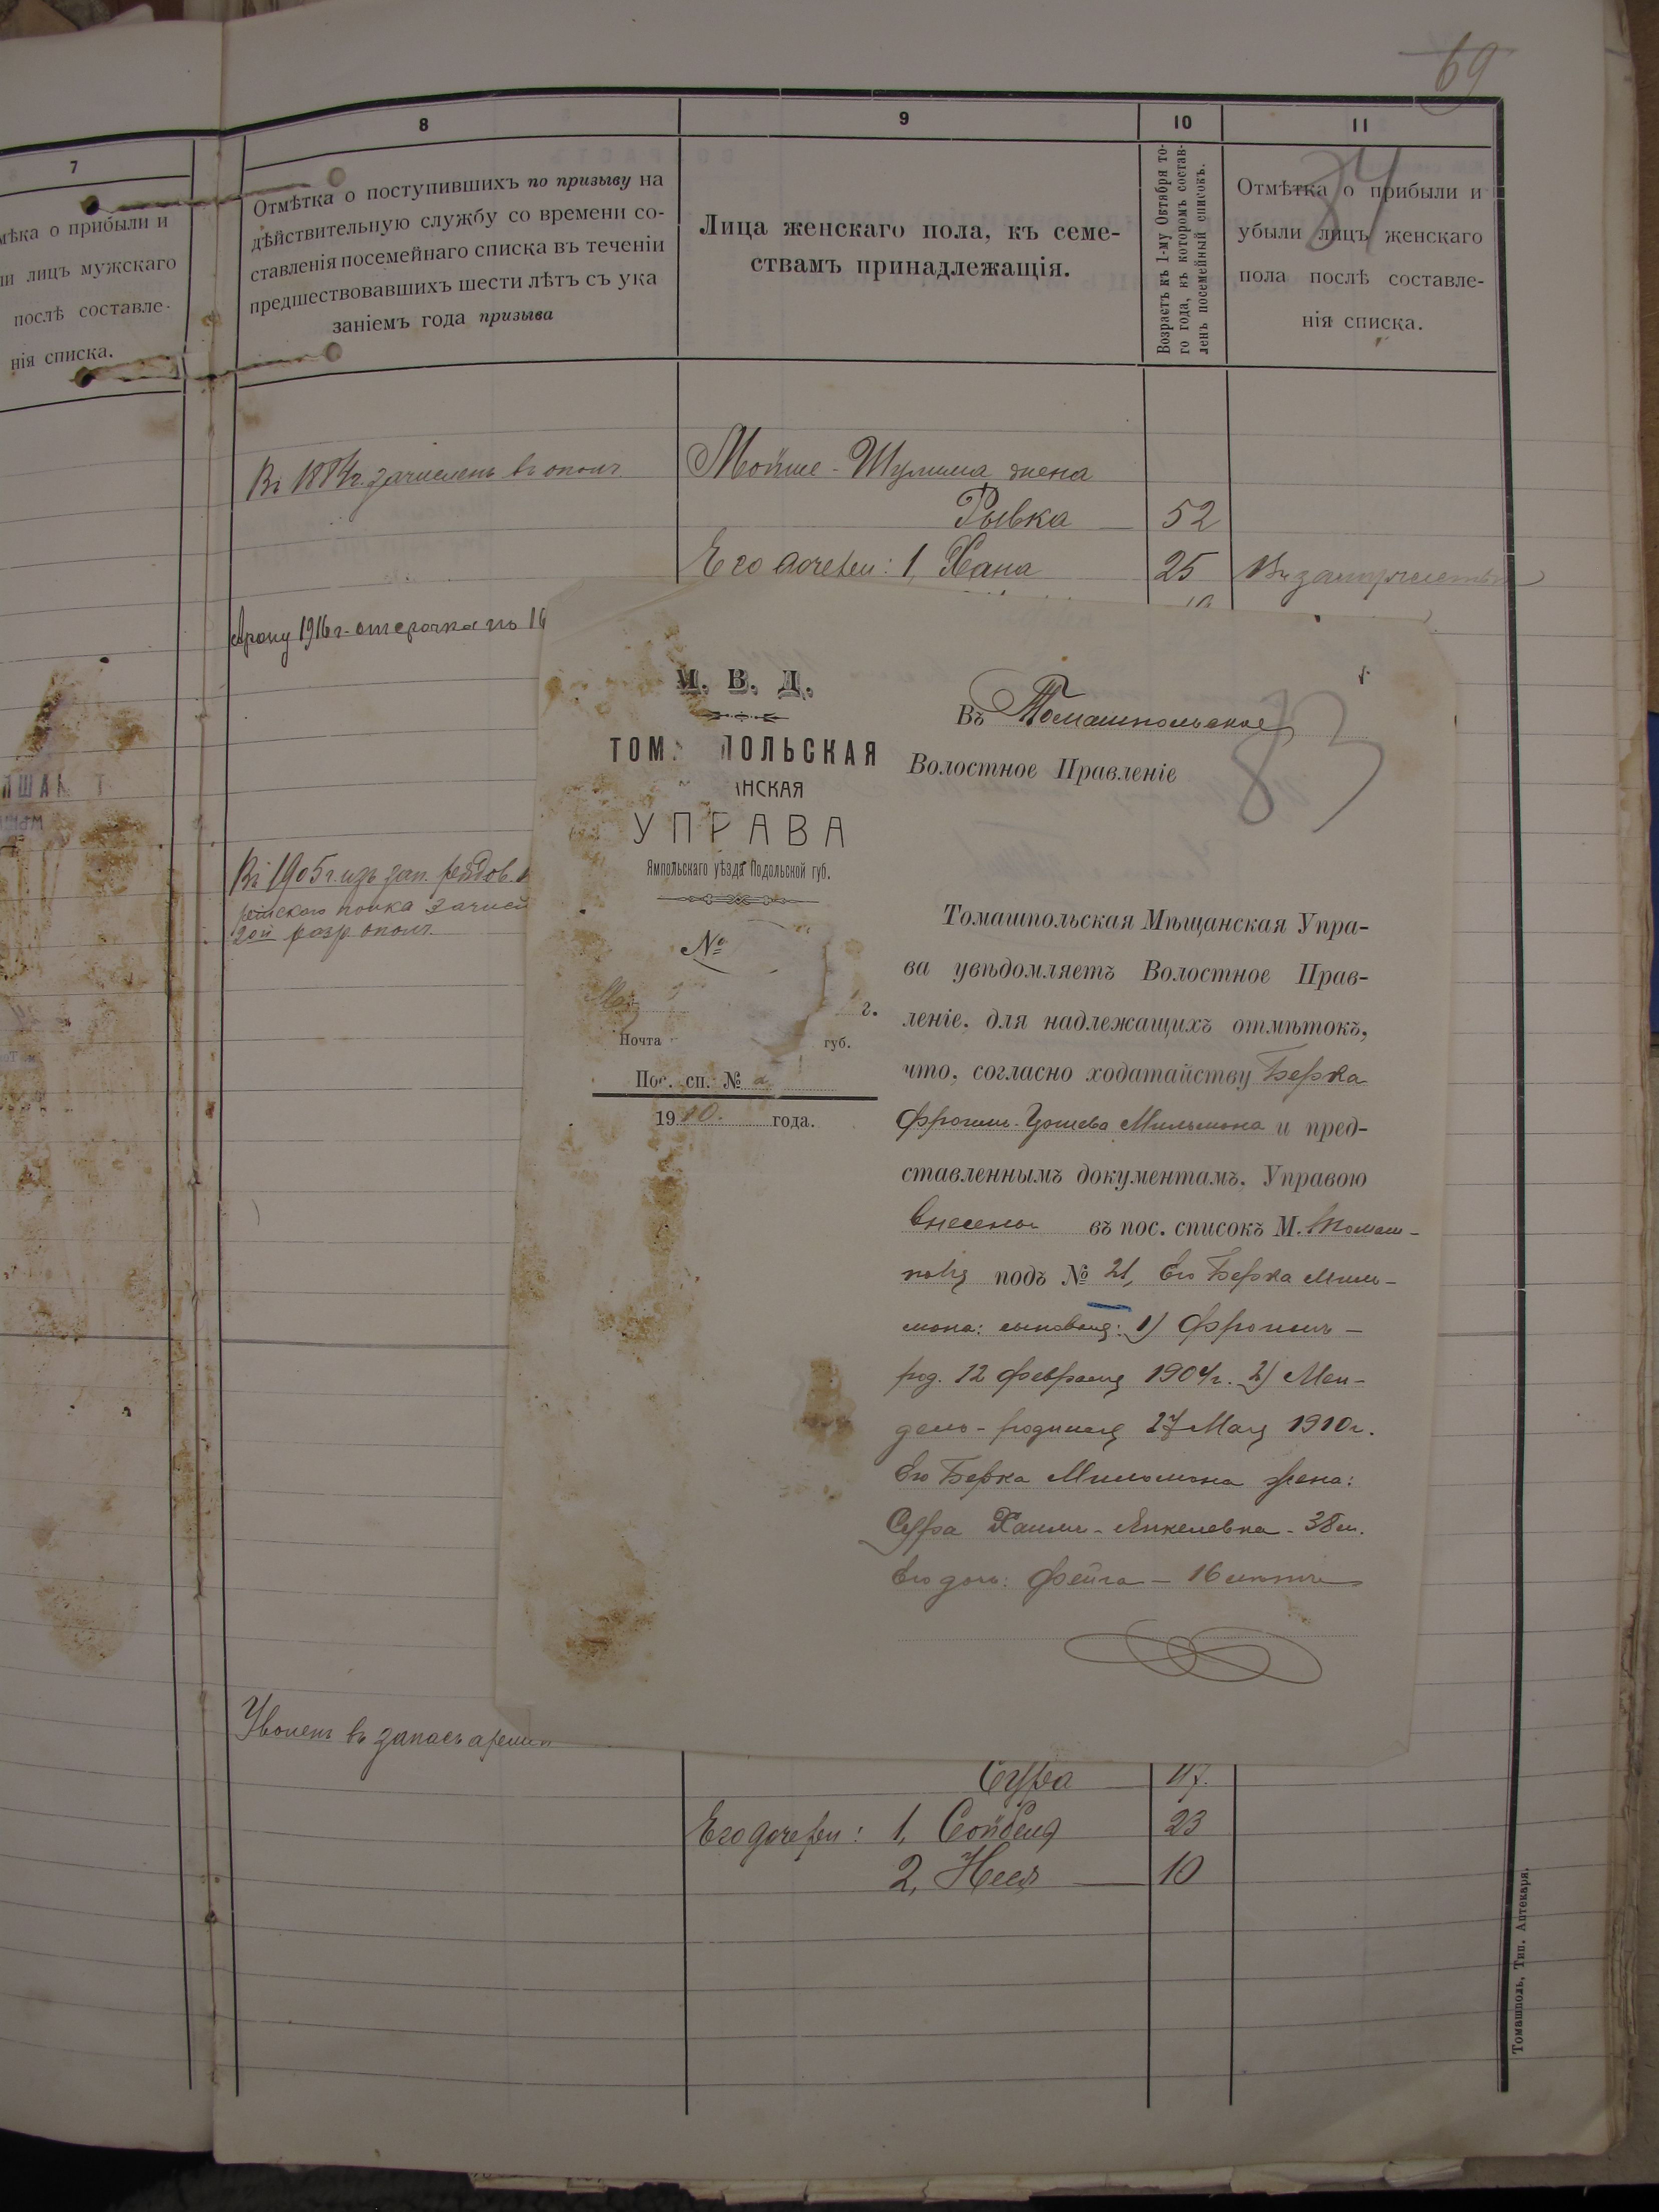 69
7
8
9
10
11
мѣка о прибыли и
ли лицъ мужскаго
послѣ составле-
нія списка.
Отмѣтка о поступившихъ по призыву на
дѣйствительную службу со времени со-
ставленія посемейнаго списка въ теченіи
предшествовавшихъ шести лѣтъ съ ука
заніемъ года призыва
Лица женскаго пола, къ семе-
ствамъ принадлежащія.
Возрастъ къ 1-му Октября то-
го года, къ которомъ состав-
ленъ посемейный списокъ.
84
Отмѣтка о прибыли и
убыли лицъ женскаго
пола послѣ составле-
нія списка.
Въ 1884г. зачисленъ въ ополч.
Мойше-Шулима жена
Рывка 52
Его дочери: 1, Хана 25 Въ замужествѣ
Арону 1916г. отсрочка по 19
Въ 1905г. изъ зап. рядов.
полка зачисл
2ой разр ополч.
Уволенъ въ запасъ арміи
М. В. Д.
ТОМ ПОЛЬСКАЯ
НСКАЯ
УПРАВА
Ямпольскаго уѣзда Подольской губ.
№
Мая г.
Почта губ.
Пос. сп. №
1910. года.
Въ Томашпольское
Волостное Правленіе
83
Томашпольская Мѣщанская Упра-
ва увѣдомляетъ Волостное Прав-
леніе, для надлежащихъ отмѣтокъ,
что, согласно ходатайству Берка
Фроим-Иошева Мильмана и пред-
ставленнымъ документамъ, Управою
внесены въ пос. списокъ М. Томаш-
поля подъ № 21, его Берка Миль-
мана: сыновья: 1) Фроимъ -
род. 12 февраля 1904г. 2) Мен-
дель - родился 27 Мая 1910г.
Его Берка Мильмана жена:
Сура Хаим-Янкелевна - 38 л.
Его дочь: Фейга - 16 лѣтъ
Сура 47.
Его дочери: 1, Сойбеля 23
2, Неся 10
Томашполь, Тип. Аптекаря.